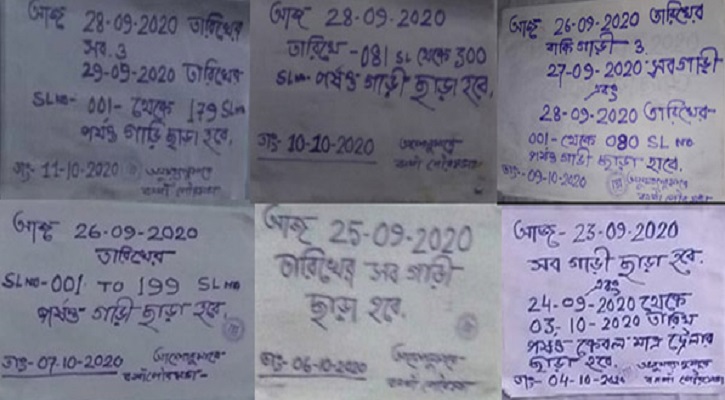 আজ 28-09-2020 তারিখের
সব ও
29-09-2020 তারিখের
SL NO- 001- থেকে 179 SL NO
পর্যন্ত গাড়ি ছাড়া হবে.
তাং- 11-10-2020 অনুমত্যানুসারে
বনগাঁ পৌরসভা
আজ 28-09-2020
তারিখ -081 SL থেকে 300
SL NO- পর্যন্ত গাড়ী ছাড়া হবে.
তাং- 10-10-2020
বনগাঁ পৌরসভা
আজ 26-09-2020 তারিখের
বাকি গাড়ী ও.
27-09-2020 সব গাড়ী
এবং
28-09-2020 তারিখের
001- থেকে 080 SL NO
পর্যন্ত গাড়ী ছাড়া হবে.
তাং- 09-10-2020
বনগাঁ পৌরসভা
আজ 26-09-2020
তারিখের
SL NO-001 TO 199 SL NO
পর্যন্ত গাড়ী ছাড়া হবে.
তাং- 07-10-2020
বনগাঁ পৌরসভা-
আজ 25-09-2020
তারিখের সব গাড়ী
ছাড়া হবে.
তাং- 06-10-2020
বনগাঁ পৌরসভা
আজ- 23-09-2020
সব গাড়ী ছাড়া হবে.
এবং
24-09-2020 থেকে
03-10-2020 তারিখ
পর্যন্ত কেবল মাত্র ট্রেলার
ছাড়া হবে.
তাং- 04-10-2020
বনগাঁ পৌরসভা